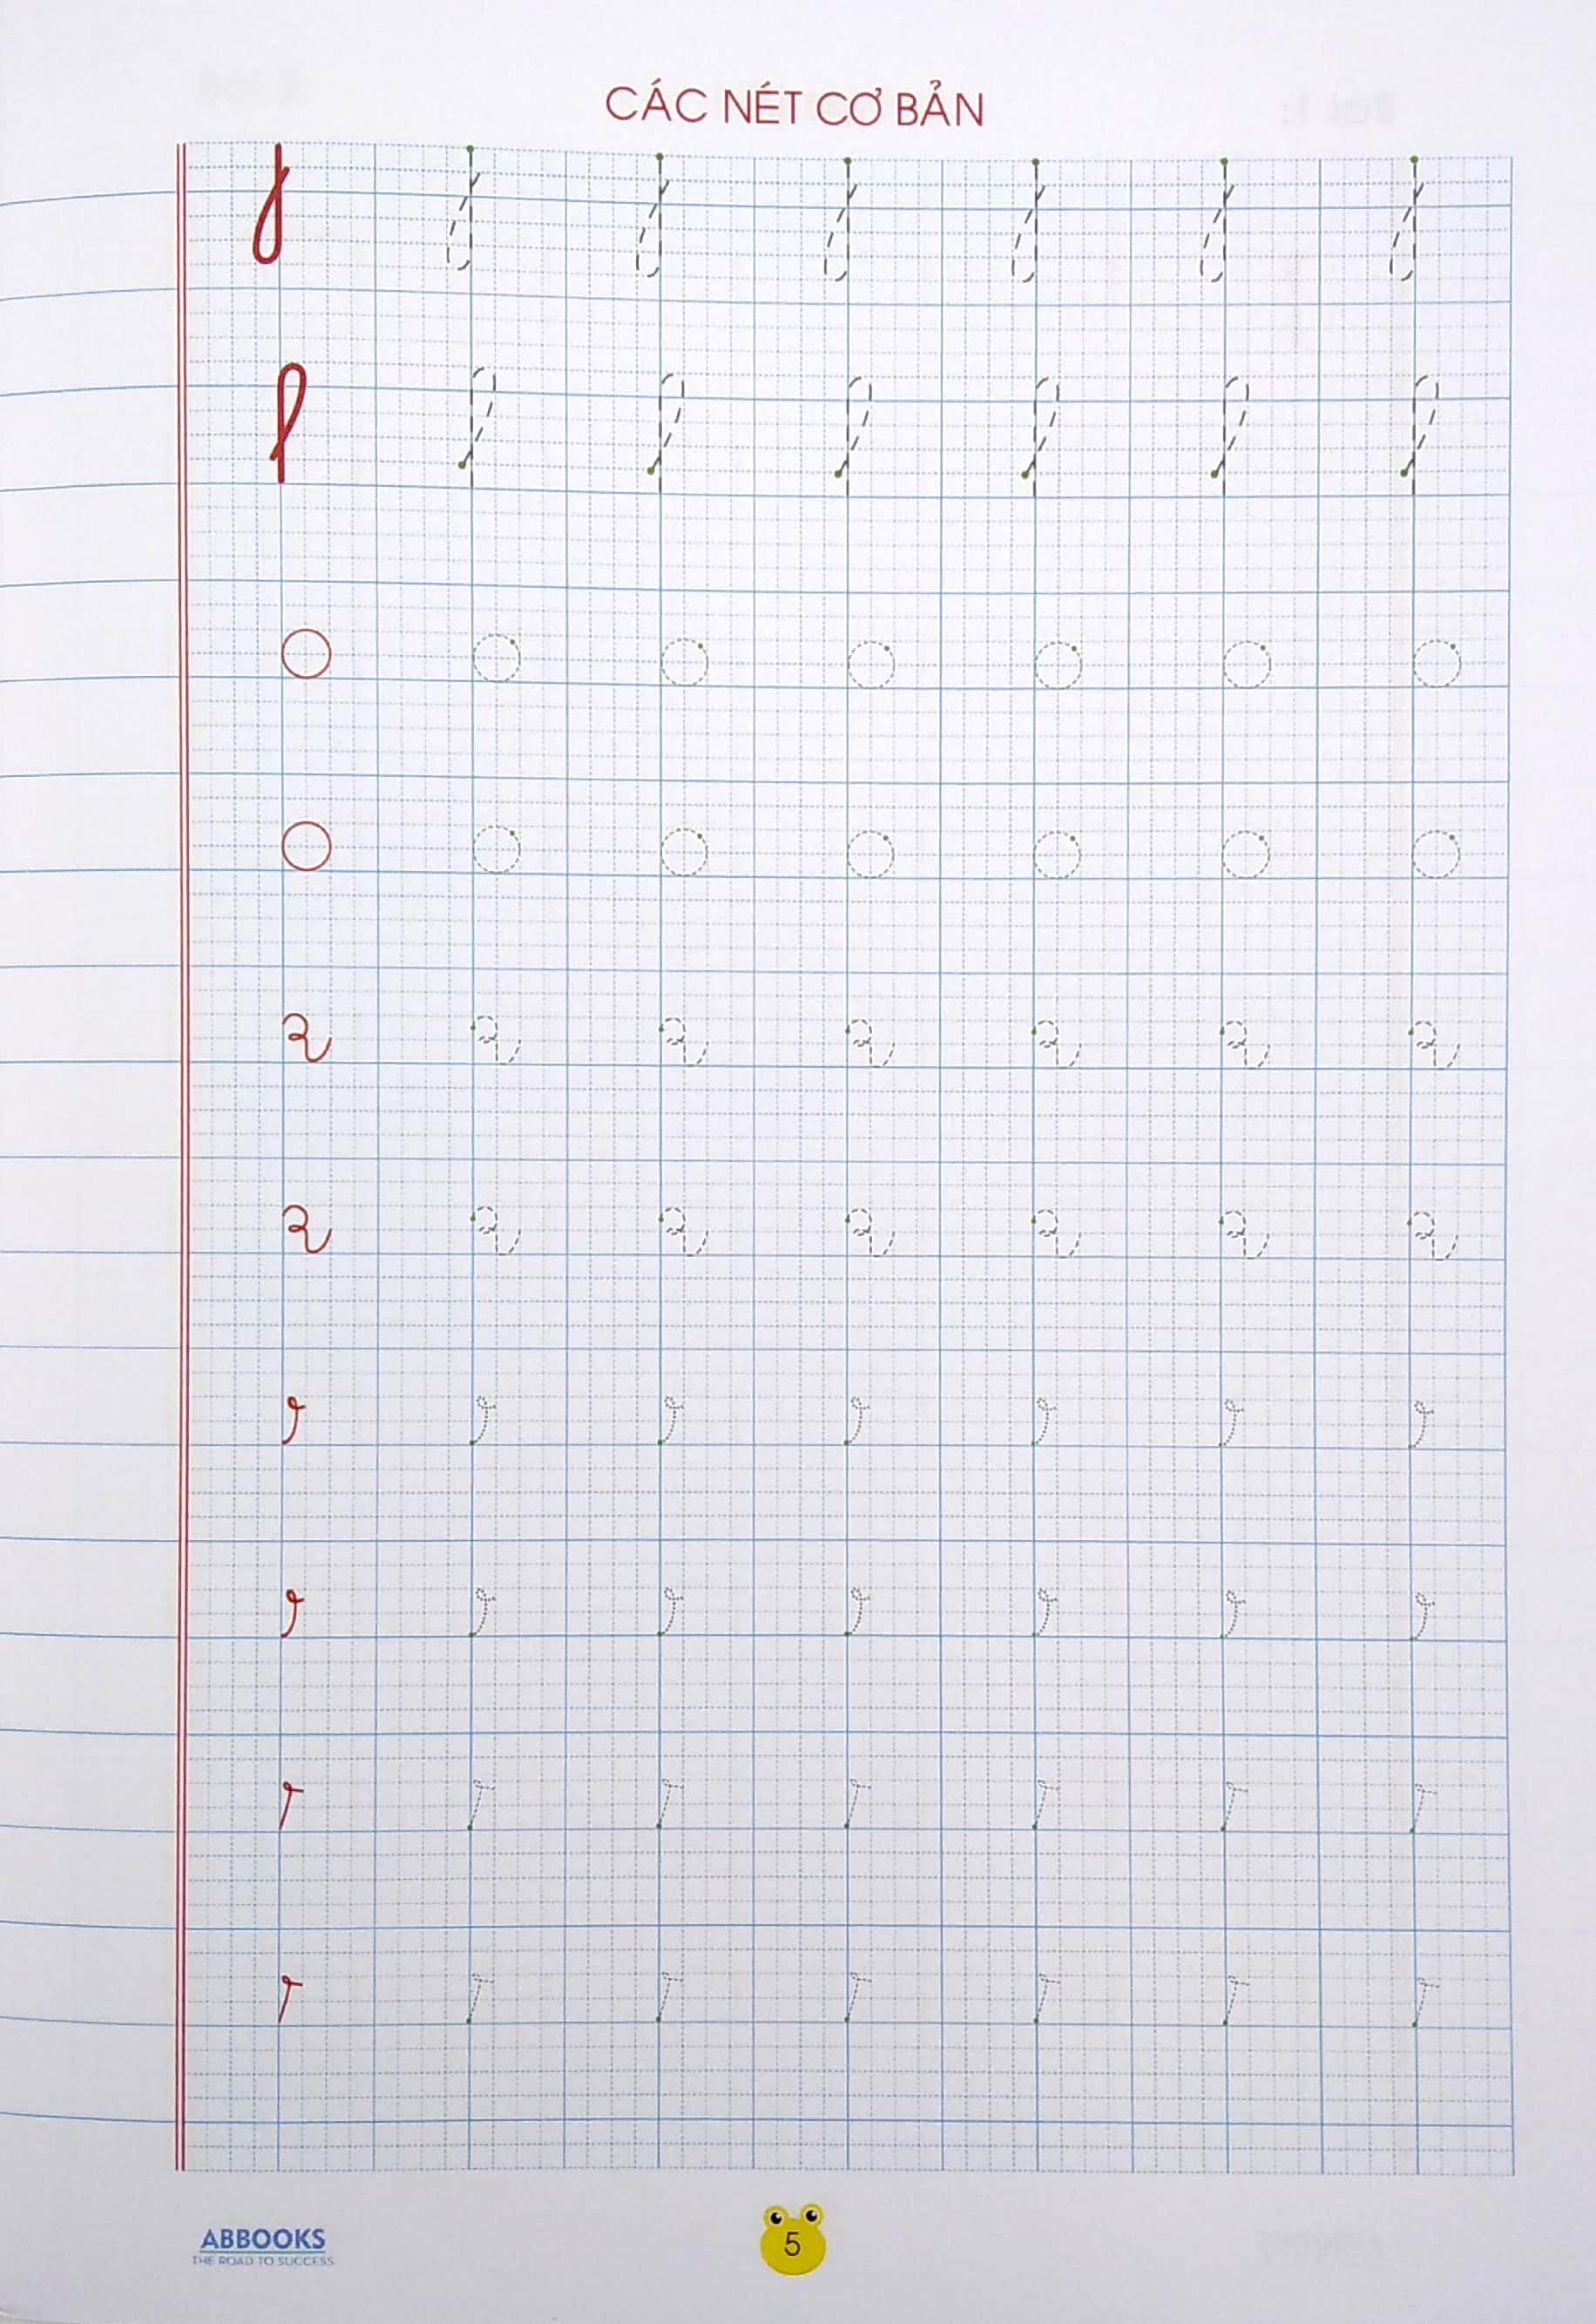 CÁC NÉT CƠ BẢN
ABBOOKS
THE ROAD TO SUCCESS
5